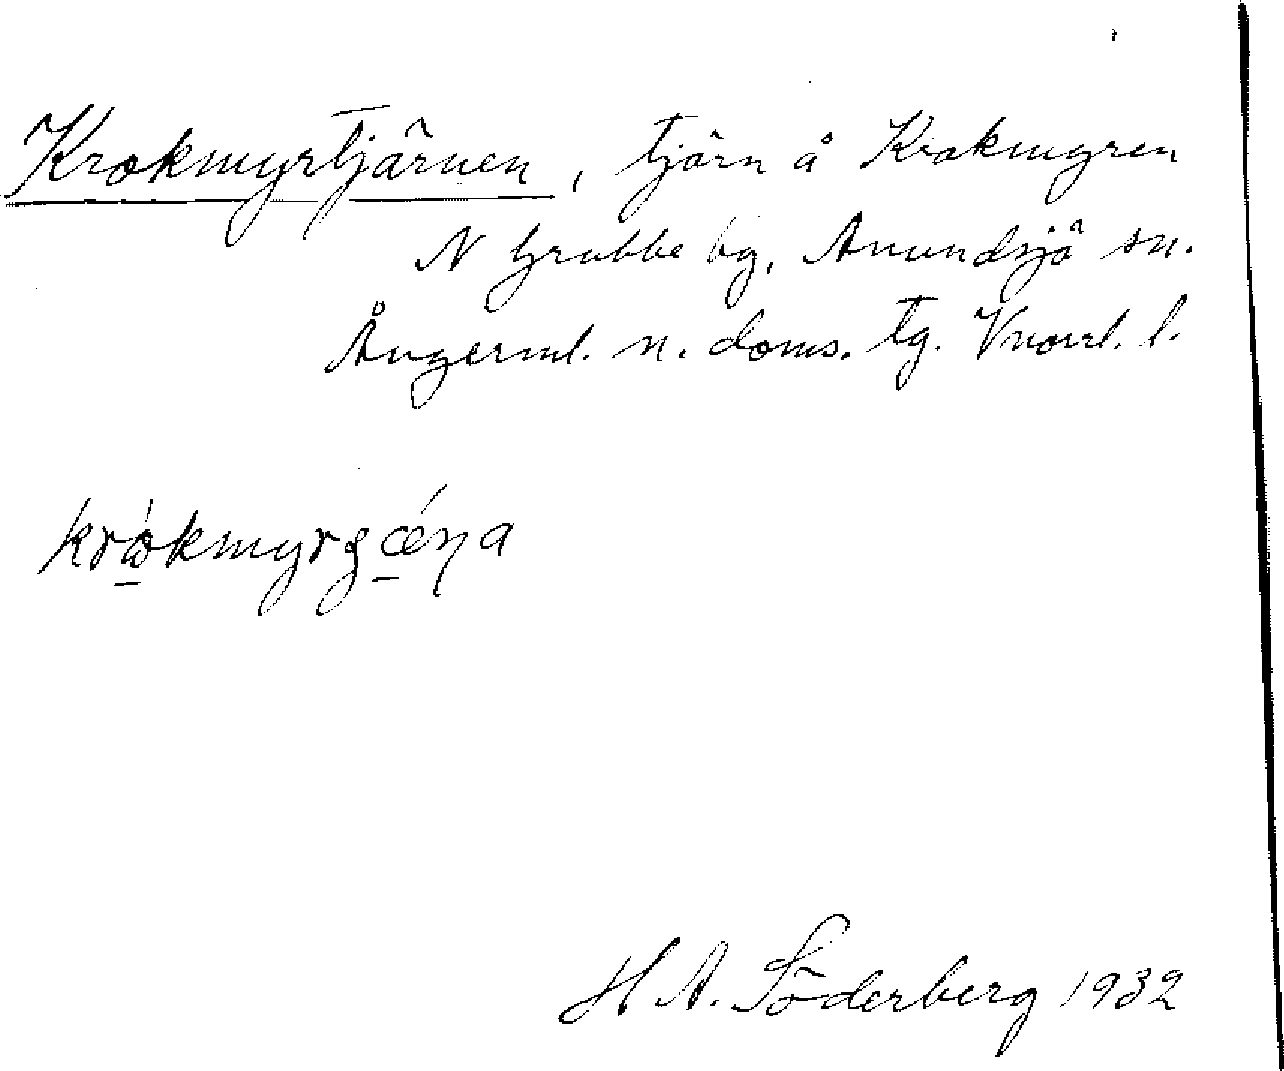 Krokmyrtjärnen, tjärn å Krokmyren
N Grubbe bg, Anundsjö sn.
Ångerml. n. doms. tg. Vnorrl. l.
H A. Söderberg 1932